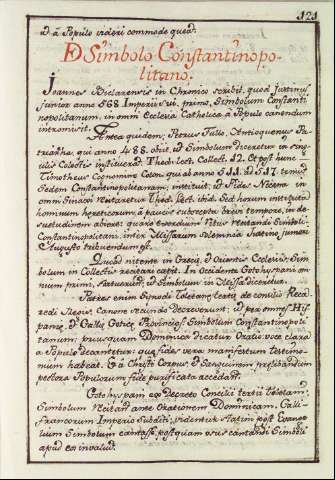 121
id à Populo videri commode quod.
De Simbolo Constantinopo-
litano.
Joannes Biclarensis in Chronico scribit, quod Justinus
Junior anno 568. Imperii sui primo, Simbolum Constanti
nopolitanum, in omni Ecclesia Catholica à Populo canendum
intromisit.
Antea quidem, Petrus Fullo, Antioquenus Pa-
triarcha, qui anno 488. obiit, id Simbolum diceretur in sin-
gulis Colectis instituerat. Theod. Lect. Collect. 12. Et post hunc
Timotheus Cognomine Colon: qui ab anno 511. ad 517. tenuit
Sedem Constantinopolitanam, instituit, ut Fides Nicena in
omni Sinaxi recitaretur Theod. Lect. ibid. Sed horum instituta
hominum hereticorum, à paucis suscepta brevi tempore, in de-
suetudinem abiere: quare exordium Ritus recitandi Simboli
Constantinopolitani, inter Missarum Solemnia Justino juniori
Augusto tribuendum est.
Quibus nitente in Grecis, et Orientis Ecclesiis, Sim-
bolum in Collectis recitare cæpit. In Occidente Gotohyspani om-
nium primi, statuerunt, id Simbolum in Missa diceretur.
Patres enim Synodi Toletane tertie de consilio Reca-
redi Regis, Canone secundo Decreverunt: ut per omnes His-
panie, et Gallie Gotice Provincias Simbolum Constantinopoli-
tanum, priusquam Dominica dicatur Oratio: voce clara
à Populo decantetur: quo fides vera manifestum testimo-
nium habeat. Et à Christi Corpus, et Sanguinem prelibandum
pectora Populorum fide purificata accedant.
Gotohyspani ex Decreto Concilii tertii Toletani,
Simbolum recitant ante Orationem Dominicam. Galli
Francorum Imperio Subditi, videntur statim post Evange-
lium Simbolum cantasse, postquam usus cantandi Simboli
apud eos invaluit.